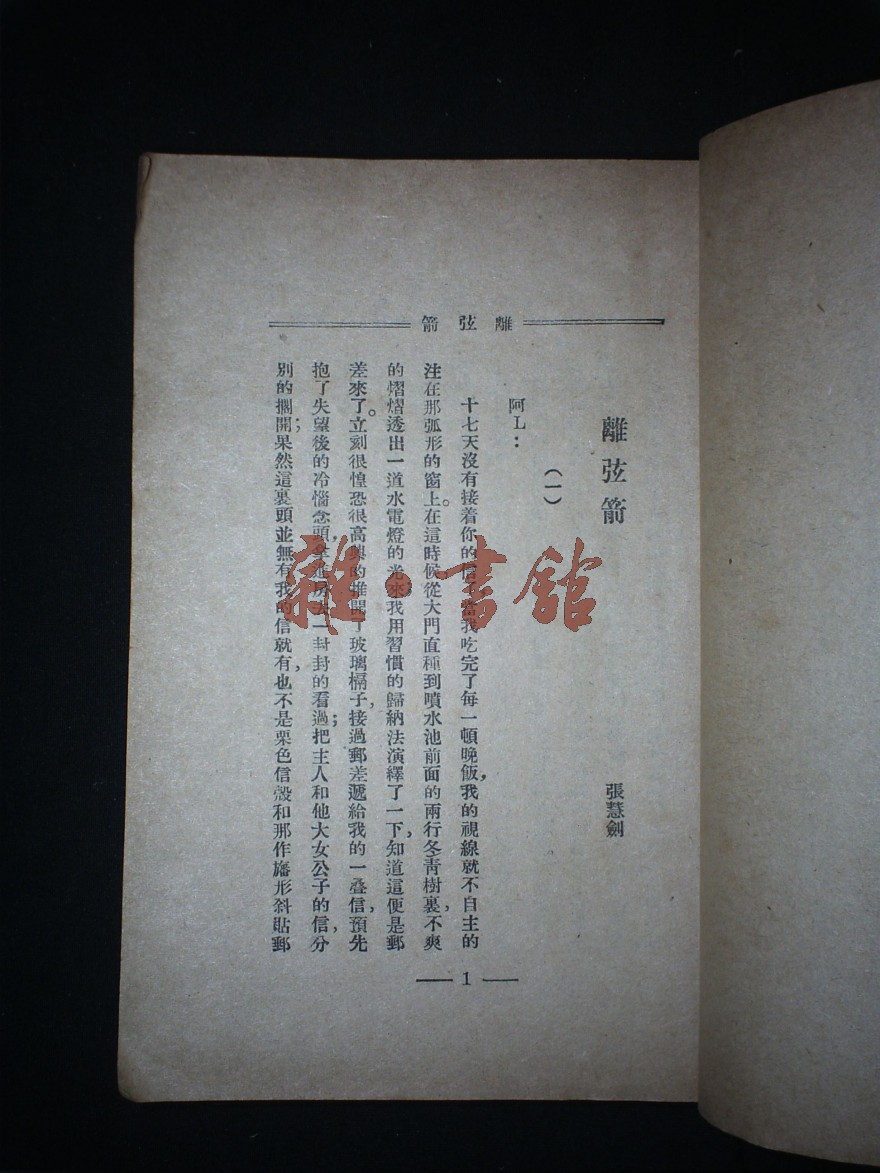 離弦箭
離弦箭
張慧劍
（一）
阿L：
十七天沒有接着你的信，當我吃完了每一頓晚飯，我的視線就不自主的
注在那弧形的窗上。在這時候從大門直種到噴水池前面的兩行冬靑樹裏，不爽
的熠熠透出一道水電燈的光來，我用習慣的歸納法演繹了一下，知道這便是郵
差來了。立刻很惶恐很高興的推開了玻璃槅子，接過郵差遞給我的一叠信，預先
抱了失望後的冷惱念頭，拿進房去一封封的看過；把主人和他大女公子的信，分
別的擱開；果然這裏頭並無有我的信就有，也不是栗色信殼和那作旛形斜貼郵
— 1 —
雜·書館